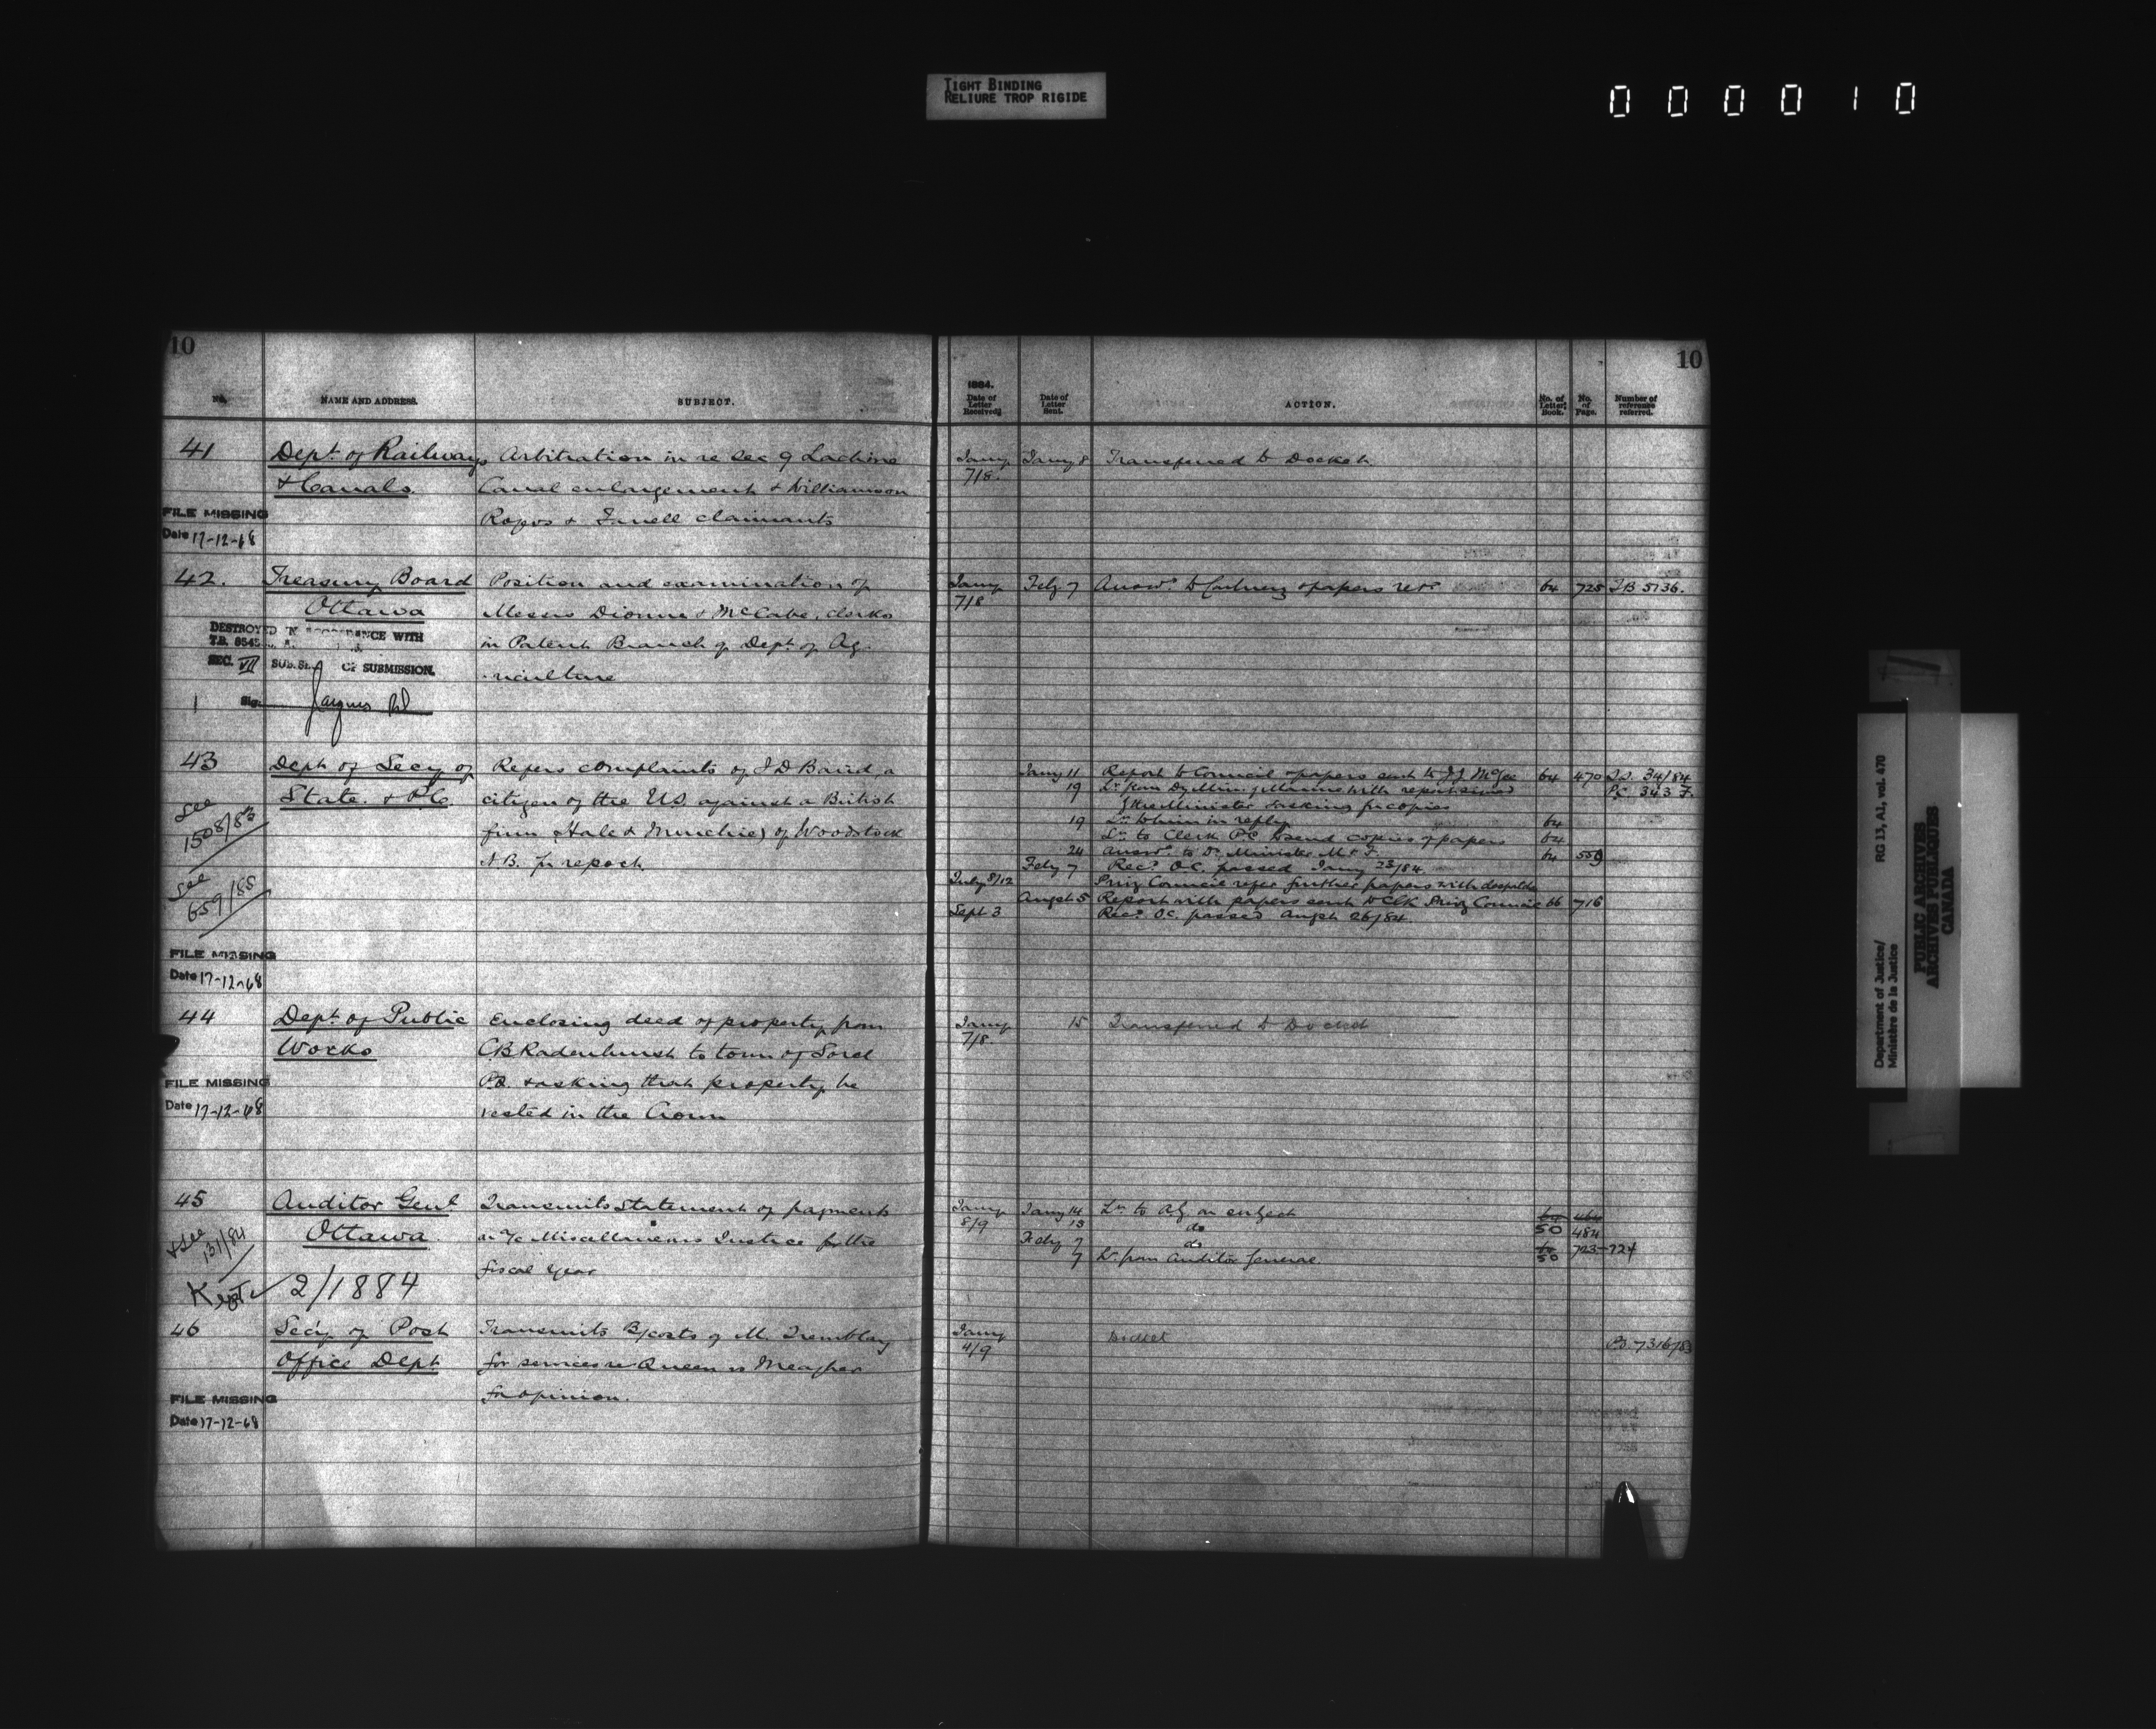 TIGHT BINDING
RELIURE TROP RIGIDE
000010
10
No.
NAME AND ADDRESS.
SUBJECT.
41
Dept. of Railways
& Canals.
Arbitration in re Sec 9 Lachine
Canal enlargement & Williamson
& claimants
FILE MISSING
Date 17-12-68
42.
Treasury Board
Ottawa
Position and examination of
Messrs Dionne & McCabe, clerks
in Patent Branch of Dept. of Ag-
-riculture
DESTROYED IN ACCORDANCE WITH
T.B. 8545
SEC. VII SUB. SEC. OF SUBMISSION.
1 Sig.
43
Dept of Secy of
State. & P.C.
Refers complaints of J D Baird, a
citizen of the US against a British
firm (Hale & Murchie) of Woodstock
N.B. for report.
See
1508/83
See
659/85
FILE MISSING
Date 17-12-68
44
Dept. of Public
Works
Enclosing deed of property from
C B Radenhurst to town of Sorel
P.Q. & asking that property be
vested in the Crown
FILE MISSING
Date 17-12-68
45
Auditor Genl
Ottawa
Transmits statement of payments
on a/c Miscellaneous Justice for the
fiscal year
& See
131/84
Kept
2/1884
46
Secy of Post
Office Dept.
Transmits B/costs of M. Tremblay
for services re Queen vs Meagher
for opinion.
FILE MISSING
Date 17-12-68
10
1884.
Date of
Letter
Received.
Date of
Letter
Sent.
ACTION.
No. of
Letter
Book.
No.
of
Page.
Number of
reference
referred.
Jany 7/8. Jany 8 Transferred to Docket.
Jany 7/8 Feby 7 Answd. to & papers retd 64 725 T B 5136.
Jany 11 Report to Council & papers sent to J J McGee 64 470 34/84
P.C. 343 F.
19 Lr. from Dy Min. of Marine with report signed
by the Minister & asking for copies
19 Lr. to him in reply 64
Lr. to Clerk P.C. to send copies of papers 64
24 Answd. to Dy. Minister M & F. 64 559
Feby 7 Recd. O.C. passed Jany 23/84.
July 8/12 Privy Council refer further papers with despatch
Augst 5 Report with papers sent to Clk Privy Council 66 716
Sept 3 Recd. O.C. passed Augst 26/84.
Jany 7/8. 15 Transferred to Docket
Jany 8/9 Jany 14 Lr. to A.G. on subject
15 do 50 484
Feby 7 do 723-724
7 Lr. from Auditor General. 50
Jany 4/9 Docket P.O. 7316/83
Department of Justice/
Ministère de la Justice
RG 13, A1, vol. 470
PUBLIC ARCHIVES
ARCHIVES PUBLIQUES
CANADA